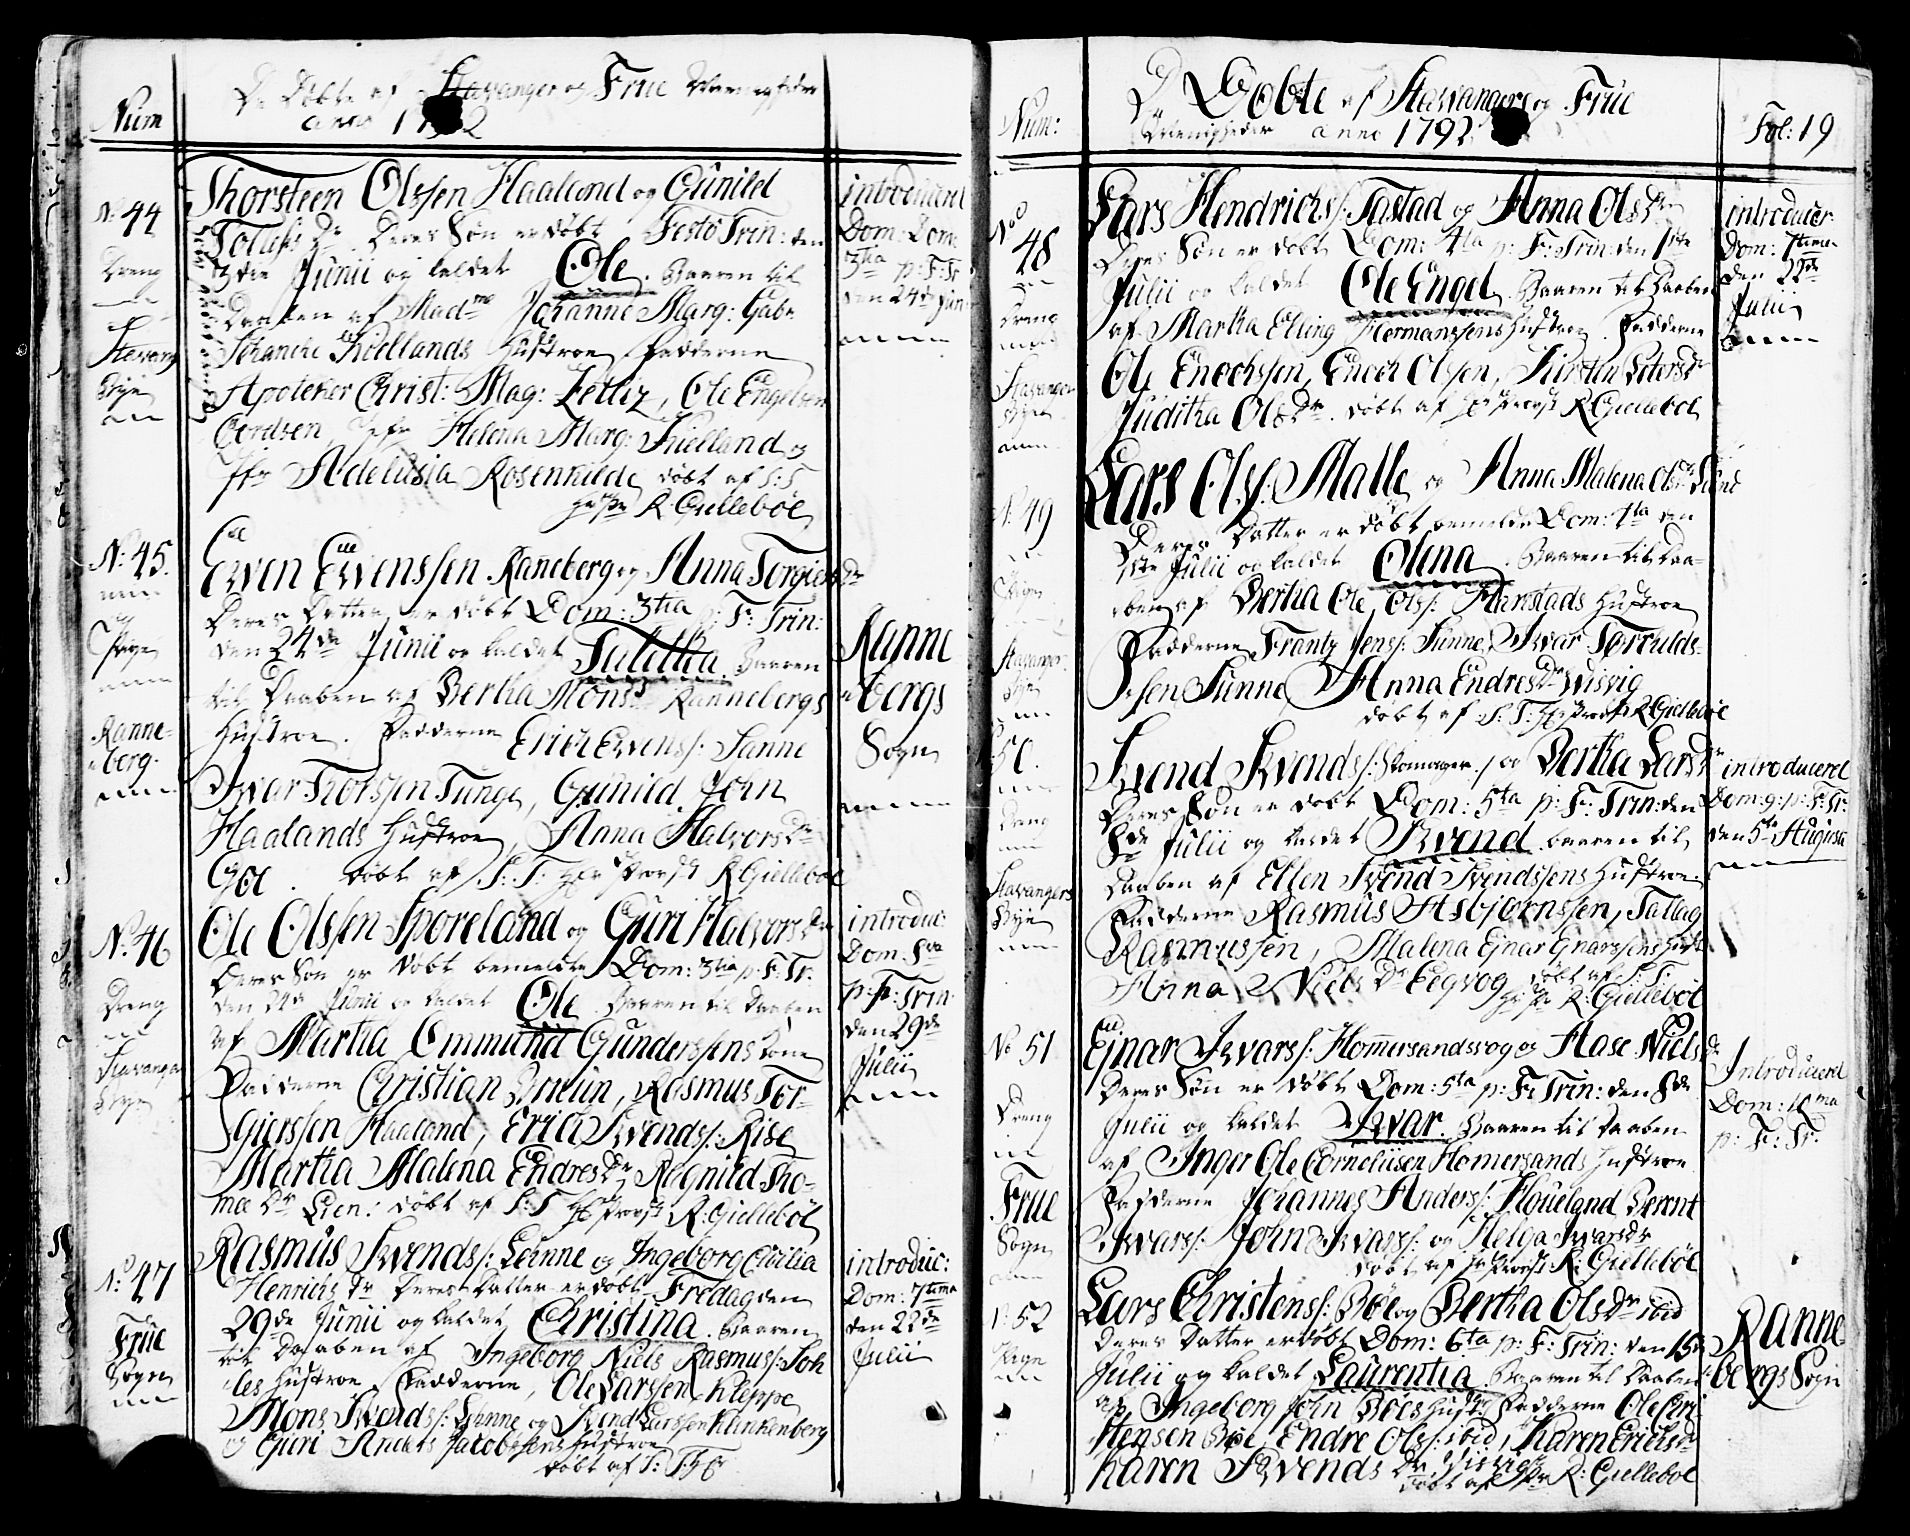 Num
De Döbte af Stavanger og Frue Meenigheder
anno 1792
No 44
Dreng
af
Stavang
Bÿe
Thorsteen Olssen Haaland og Gunild
Tollefs Dr Deres Søn er døbt Festo Trin: den
3die Junii og kaldet Ole. Baaren til
Daaben af Madme Johanne Marg: Gabr
Schanche Kiellands Hustroe Fadderne
Apoteker Christ: Mag: Zetliz, Ole Engelsen
Gerdsen, Jfr Helena Marg: Kielland og
Jfr Adelusia Rosenkilde døbt af S: T
R: Giellebøl
introducerd
Dom: Dom:
3tia p: F: Tr
den 24de Jun:
No 45.
Pige
Ranne-
berg.
Even Evenssen Ranneberg og Anna Torgiers Dr
Deres Datter er døbt Dom: 3tia p: F: Trin:
den 24de Junii og kaldet Taletha. Baaren
til Daaben af Bertha Mons Dr Rannebergs
Hustroe. Fadderne Erich Evenss: Sanne
Ivar Thorssen Tunge, Gunild John
Haalands Hustroe, Anna Halvors Dr
Goe. døbt af S: T: Hr Provst R Giellebøl
Ranne
bergs
Sogn
No 46
Dreng
Stavanger
Bye
Ole Olssen Sporeland og Guri Halvors Dr
Deres Søn er døbt bemeldte Dom: 3tia p: F: Tr:
den 24de Junii og kaldet Ole Baaren til Daaben
af Martha Ommund Gunderssens Kone
Fadderne Christian Brelin, Rasmus Tor-
gierssen Haaland, Erich Svends: Rise
Martha Malena Endres Dr, Rognild Tho-
mæ Dr Lien: døbt af S: T Hr Provst R: Giellebøl
introduc:
Dom: 8va
p: F: Trin:
den 29de
Julii
No 47
Frue
Sogn
Rasmus Svends: Leinne og Ingeborg Cicilia
Henrichs Dr Deres Datter er døbt Fredag den
29de Junii og kaldet Christina. Baaren
til Daaben af Ingeborg Niels Rasmuss: Soh
les Hustroe Fadderne, Ole Larssen Kleppe,
Mons Svends: Leinne og Svend Larssen Klinkenberg
og Guri Anders Jacobssens Hustroe
døbt af S: T
introduc:
Dom: 7tima
den 22de
Julii
Num:
De Dobte af Stavangers og Frue
Meenigheder anno 1792
Fol: 19
No 48
Dreng
Stavanger
Bye
Lars Hendrichs: Tastad og Anna Ols Dr
Deres Søn er døbt Dom: 4ta p: F: Trin: den 1ste
Julii og kaldet Ole Engel. Baaren til Daaben
af Martha Elling Hermanssens Hustroe Fadderne
Ole Enochssen, Enoch Olssen, Kirsten Peters Dr
Juditha Ols Dr. døbt af Hr Provst R Giellebøl
introducer:
Dom: 7tima
den 22de
Julii
N: 49
Pige
Stavanger
Bye
Lars Ols: Malle og Anna Malena Ols Dr Lund
Deres Datter er døbt bemeldte Dom: 4ta den
1ste Julii og kaldet Olena. Baaren til Daa-
ben af Bertha Ole Ols: Hanstads Hustroe
Fadderne Frantz Jens: Sunne, Ivar Torkilds-
sen Sunne, Anna Endres Dr Visvig
døbt af S: T: Hr Provst R: Giellebøl
50.
Dreng
Stavangers
Bye
Svend Svends: Skomager :/ og Bertha Lars Dr
Deres Søn er døbt Dom: 5ta p: F: Trin: den
8de Julii og kaldet Svend. baaren til
Daaben af Ellen Svend Svendssens Hustroe
Fadderne Rasmus Asbjørnssen, Tallag
Rasmussen, Malena Ejnar Gnarssens Hust:
Anna Niels Dr Eegvog døbt af S: T:
R: Giellebøl
introducered
Dom: 9: p: F: Tr:
den 5te Augusti
No 51
Dreng
Frue
Sogn
Ejnar Ivars: Hommersandsvog og Aase Niels Dr
Deres Søn er døbt Dom: 5ta p: F: Trin: den 8de
Julii og kaldet Ivar. Baaren til Daaben
af Inger Ole Corneliisen Homersands Hustroe
Fadderne Johannes Anders: Houeland Berent
Ivars: John Ivars: og Helga Ivars Dr
døbt af Hr Provst R: Giellebøl
Introducered
Dom: 10ma
p: F: Tr:
N: 52
Pige
Lars Christens: Bøe og Bertha Ols Dr ibid
Deres Datter er døbt Dom: 6ta p: F: Trin: den 15de
Julii og kaldet Laurentia. Baaren til Daaben
af Ingeborg John Bøes Hustr: Fadderne Ole Chri-
stensen Bøe, Endre Ols: ibid, Karen Erichs Dr
Karen Svends Dr Visvig
døbt af R: Giellebøl
Ranne
bergs Sogn